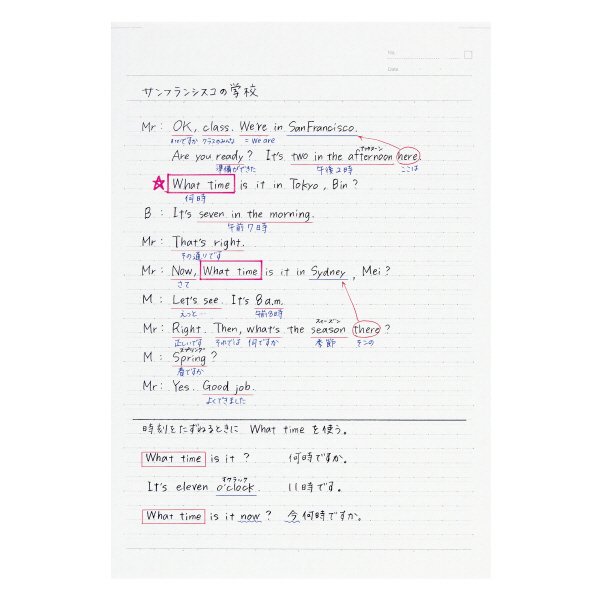 No.
Date
サンフランシスコの学校
Mr: OK, class. We're in SanFrancisco.
いいですか クラスのみんな = we are
アフタヌーン
Are you ready? It's two in the afternoon here.
準備ができた 午後2時 ここは
☆ What time is it in Tokyo, Bin?
何時
B: It's seven in the morning.
午前7時
Mr: That's right.
その通りです
Mr: Now, What time is it in Sydney, Mei?
さて
M: Let's see. It's 8 a.m.
えっと… 午前8時
スィーズン
Mr: Right. Then, what's the season there?
正しいです それでは 何ですか 季節 そこの
スプリング
M: Spring?
春ですか
Mr: Yes. Good job.
よくできました
時刻をたずねるときに What time を使う。
What time is it? 何時ですか。
オクラック
It's eleven o'clock. 11時です。
What time is it now? 今何時ですか。